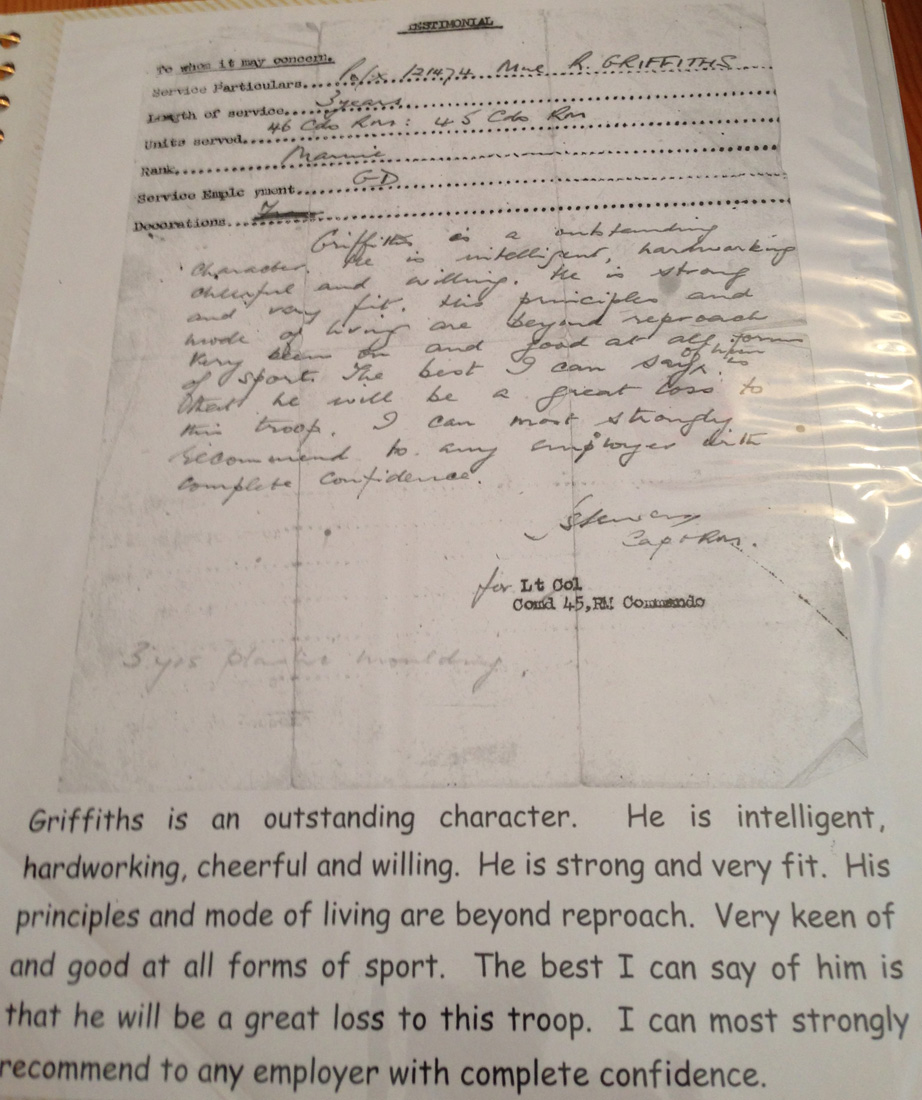 TESTIMONIAL
To whom it may concern.
Service Particulars... Po/x 121474 Mne R. GRIFFITHS
Length of service... 3 years
Units served... 46 Cdo Rm: 45 Cdo Rm
Rank... Marine
Service Emple yment... GD
Decorations...
Griffiths is a outstanding
character. He is intelligent, hardworking
cheerful and willing. He is strong
and very fit. His principles and
mode of living are beyond reproach
Very keen on and good at all forms
of sport. The best I can say of him is
that he will be a great loss to
this troop. I can most strongly
recommend to any employer with
complete confidence.
Capt Rm.
for Lt Col
Comd 45,RM Commando
3 yrs plaster moulding.
Griffiths is an outstanding character. He is intelligent,
hardworking, cheerful and willing. He is strong and very fit. His
principles and mode of living are beyond reproach. Very keen of
and good at all forms of sport. The best I can say of him is
that he will be a great loss to this troop. I can most strongly
recommend to any employer with complete confidence.